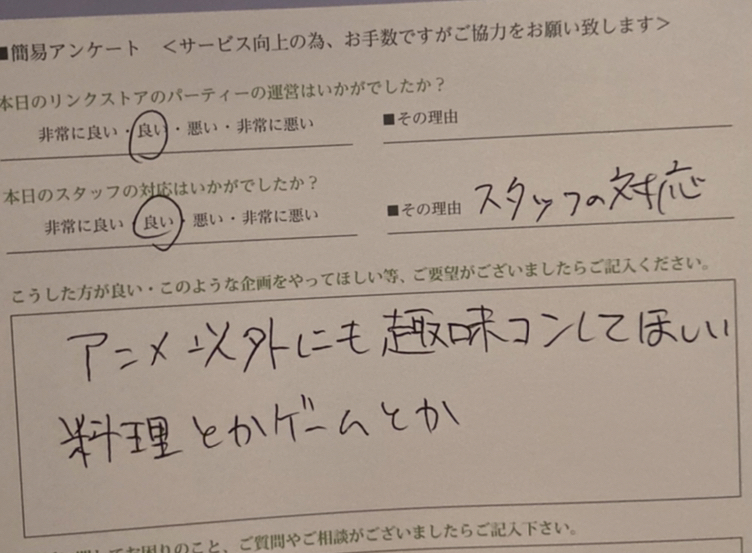 ■簡易アンケート ＜サービス向上の為、お手数ですがご協力をお願い致します＞
本日のリンクストアのパーティーの運営はいかがでしたか？
非常に良い・良い・悪い・非常に悪い ■その理由
本日のスタッフの対応はいかがでしたか？
非常に良い 良い 悪い・非常に悪い ■その理由 スタッフの対応
こうした方が良い・このような企画をやってほしい等、ご要望がございましたらご記入ください。
アニメ以外にも趣味コンしてほしい
料理とかゲームとか
お困りのこと、ご質問やご相談がございましたらご記入下さい。